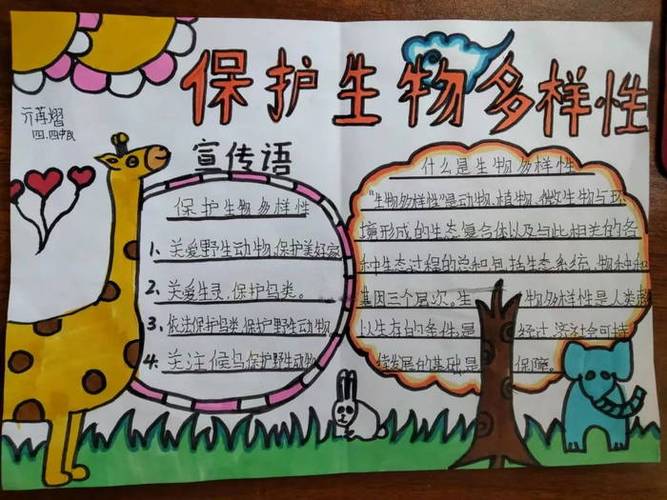 保护生物多样性
亓苒熠
四.四中队
宣传语
保护生物多样性
1、关爱野生动物,保护美好家
2、关爱生灵,保护鸟类。
3、依法保护鸟类,保护野生动物
4、关注候鸟,保护野生动物
什么是生物多样性
"生物多样性"是动物、植物、微生物与环
境形成的生态复合体以及与此相差的各
种生态过程的总和,包括生态系统、物种和
基因三个层次。生 物多样性是人类赖
以生存的条件,是 经过济社会可持
续发展的基础,是 保障。